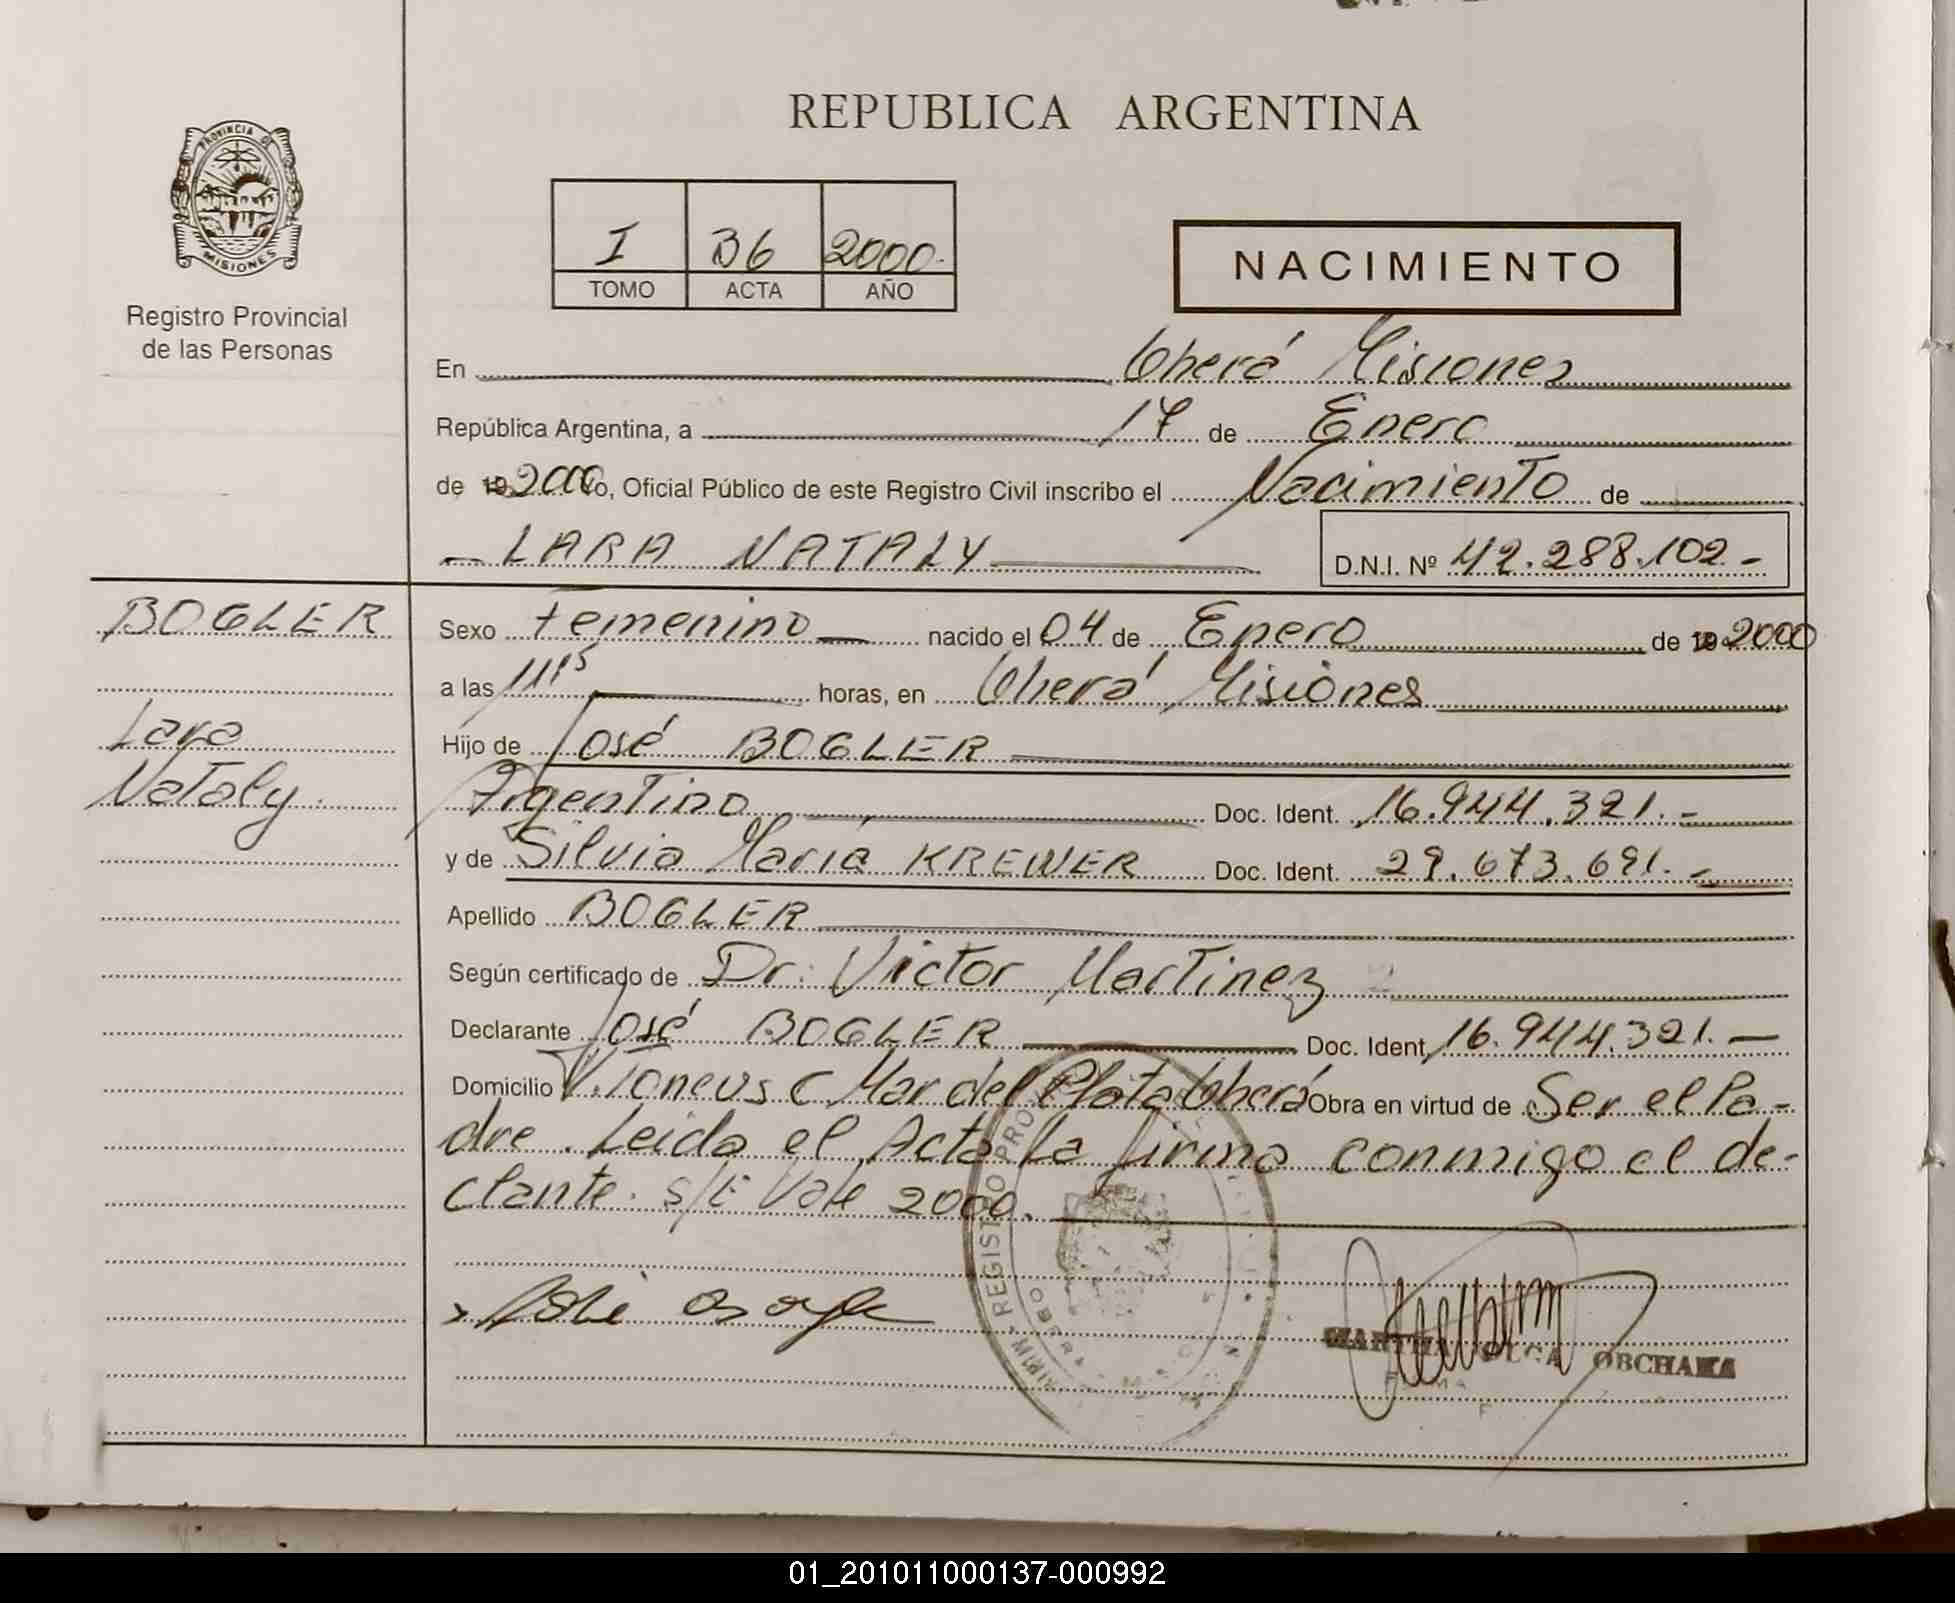 REPUBLICA ARGENTINA
PROVINCIA DE
MISIONES
Registro Provincial
de las Personas
I 36 2000.
TOMO ACTA AÑO
NACIMIENTO
En Oberá Misiones
República Argentina, a 17 de Enero
de 19 2000 Yo, Oficial Público de este Registro Civil inscribo el Nacimiento de
- LARA NATALY
D.N.I. Nº 42.288.102.-
BOGLER
Lara
Nataly.
Sexo Femenino nacido el 04 de Enero de 19 2000
a las 11 15 horas, en Oberá Misiones
Hijo de José BOGLER
Argentino Doc. Ident. 16.944.321.-
y de Silvia María KREWER Doc. Ident. 29.673.691.-
Apellido BOGLER
Según certificado de Dr. Victor Martinez
Declarante José BOGLER Doc. Ident. 16.944.321.-
Domicilio Mar del Plata Oberá Obra en virtud de Ser el Pa-
dre. Leida el Acta La firma conmigo el de-
clante. s/E Vale 2000.
José
REGISTRO
MARTHA OLGA
01_201011000137-000992